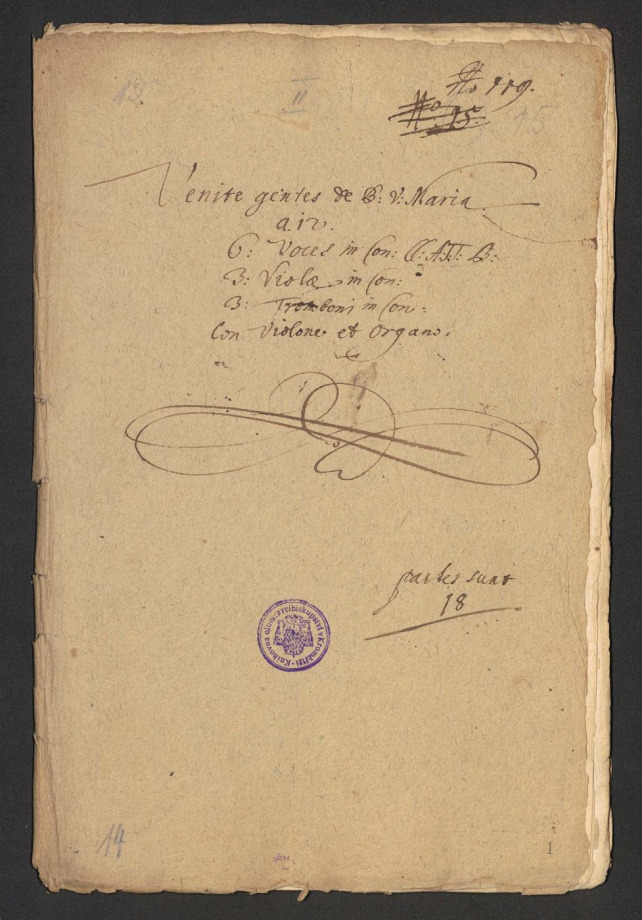 13.
II
No 119.
No. 95.
15
Venite gentes de B: V: Maria
a. 12.
6: Voces in Con: C: A: T: B:
3: Violæ in Con:
3: Tromboni in Con:
Con Violone et Organo.
partes sunt
18
Knihovna olomuc. arcibiskupství v Kroměříži
14
1